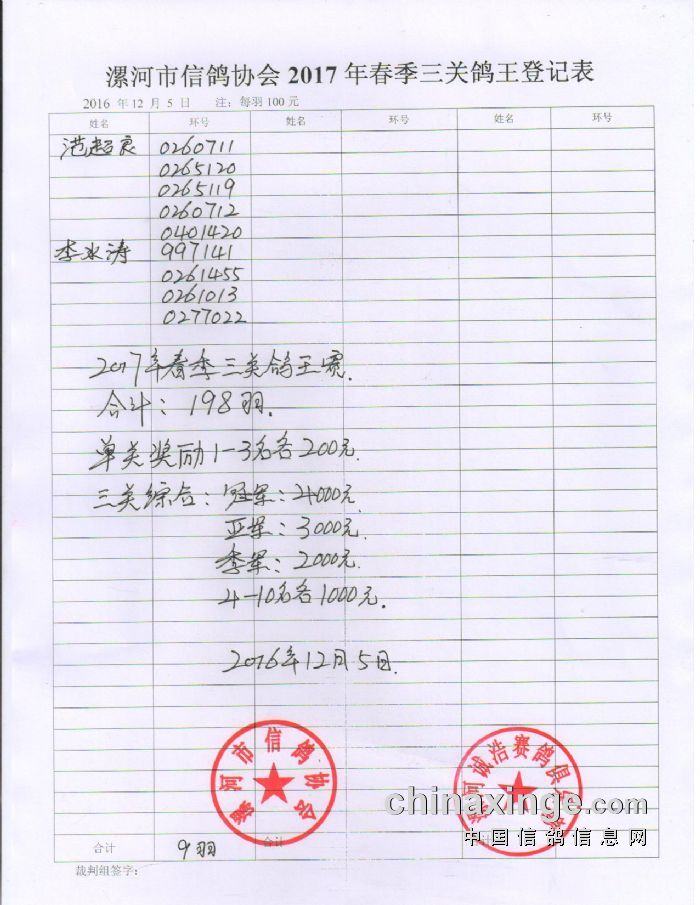 漯河市信鸽协会2017年春季三关鸽王登记表
2016 年12 月 5 日 注: 每羽100元
姓名 环号 姓名 环号 姓名 环号
范超良 0260711
0265120
0265119
0260712
0401420
李水涛 997141
0261455
0261013
0277022
2017年春季三关鸽王赛.
合计: 198羽.
单关奖励1-3名各200元.
三关综合: 冠军: 4000元.
亚军: 3000元.
季军: 2000元.
4-10名各1000元.
2016年12月5日.
漯河市信鸽协会
漯河诚浩赛鸽俱乐部
chinaxinge.com
中国信鸽信息网
合计 9羽 合计 合计
裁判组签字: